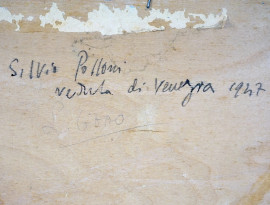 Silvio Polloni
veduta di Venezia 1947